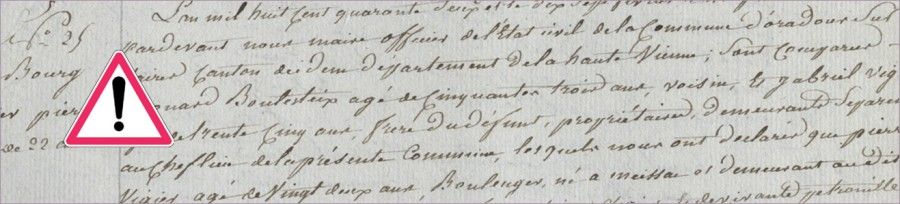 L'an mil huit cent quarante deux et le dix sept
N° 25
pardevant nous maire officier de l'Etat civil de la Commune d'oradour sur
Bourg
Canton dudem departement de la haute Vienne; sont comparus
Boulesteix agé de Cinquante trois ans, voisin, et gabriel vig
pier
trente Cinq ans, frere du defunt, propriétaires, demeurants separem
De 22 a
au Chef lieu de la présente Commune, lesquels nous ont declaré que pierre
Vigier agé de Vingt deux ans Boulenger, né a meissac et demeurant au dit
vivante petronille